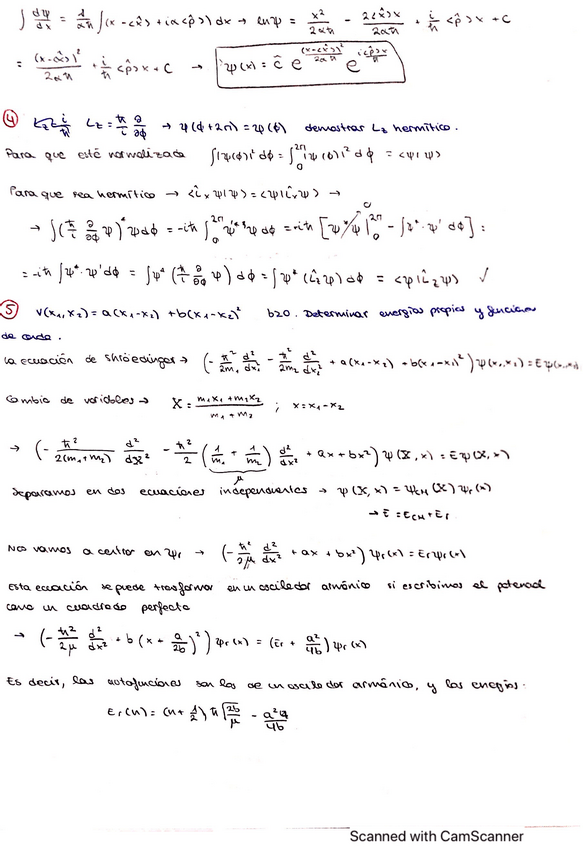 ∫ dψ/dx = 1/αħ ∫(x - <x̂> + iα<p̂>) dx → ln ψ = x²/2αħ - 2<x̂>x/2αħ + i/ħ <p̂>x + C
= (x-<x̂>)²/2αħ + i/ħ <p̂>x + C → ψ(x) = ĉ e^((x-<x̂>)²/2αħ) e^(i<p̂>x/ħ)
④ Lz = ħ/i ∂/∂ϕ → ψ(ϕ+2π) = ψ(ϕ) demostrar Lz hermítico.
Para que esté normalizada ∫|ψ(ϕ)|² dϕ = ∫₀^2π |ψ(ϕ)|² dϕ = <ψ|ψ>
Para que sea hermítico → <L̂xψ|ψ> = <ψ|L̂xψ> →
→ ∫(ħ/i ∂/∂ϕ ψ)* ψ dϕ = -iħ ∫₀^2π ψ'* ψ dϕ = -iħ [ψ*ψ|₀^2π 0 - ∫ψ*·ψ' dϕ] =
= -iħ ∫ψ*·ψ' dϕ = ∫ψ* (ħ/i ∂/∂ϕ ψ) dϕ = ∫ψ* (L̂zψ) dϕ = <ψ|L̂zψ> ✓
⑤ V(x₁,x₂) = a(x₁-x₂) + b(x₁-x₂)² b≥0. Determinar energías propias y funciones
de onda.
La ecuación de Shröedinger → (-ħ²/2m₁ d²/dx₁² - ħ²/2m₂ d²/dx₂² + a(x₁-x₂) + b(x₁-x₂)²) ψ(x₁,x₂) = Eψ(x₁,x₂)
Cambio de variables → X = (m₁x₁ + m₂x₂)/(m₁+m₂) ; x = x₁-x₂
→ (-ħ²/2(m₁+m₂) d²/dX² - ħ²/2 (1/m₁ + 1/m₂) d²/dx² + ax + bx²) ψ(X,x) = Eψ(X,x)
μ
Separamos en dos ecuaciones independientes → ψ(X,x) = ψCM(X) ψr(x)
→ E = ECM + Er
Nos vamos a centrar en ψr → (-ħ²/2μ d²/dx² + ax + bx²) ψr(x) = Erψr(x)
Esta ecuación se puede trasformar en un oscilador armónico si escribimos el potencial
como un cuadrado perfecto
→ (-ħ²/2μ d²/dx² + b (x + a/2b)²) ψr(x) = (Er + a²/4b) ψr(x)
Es decir, las autofunciones son las de un oscilador armónico, y las energías:
Er(n) = (n + 1/2) ħ √(2b/μ) - a²/4b
Scanned with CamScanner